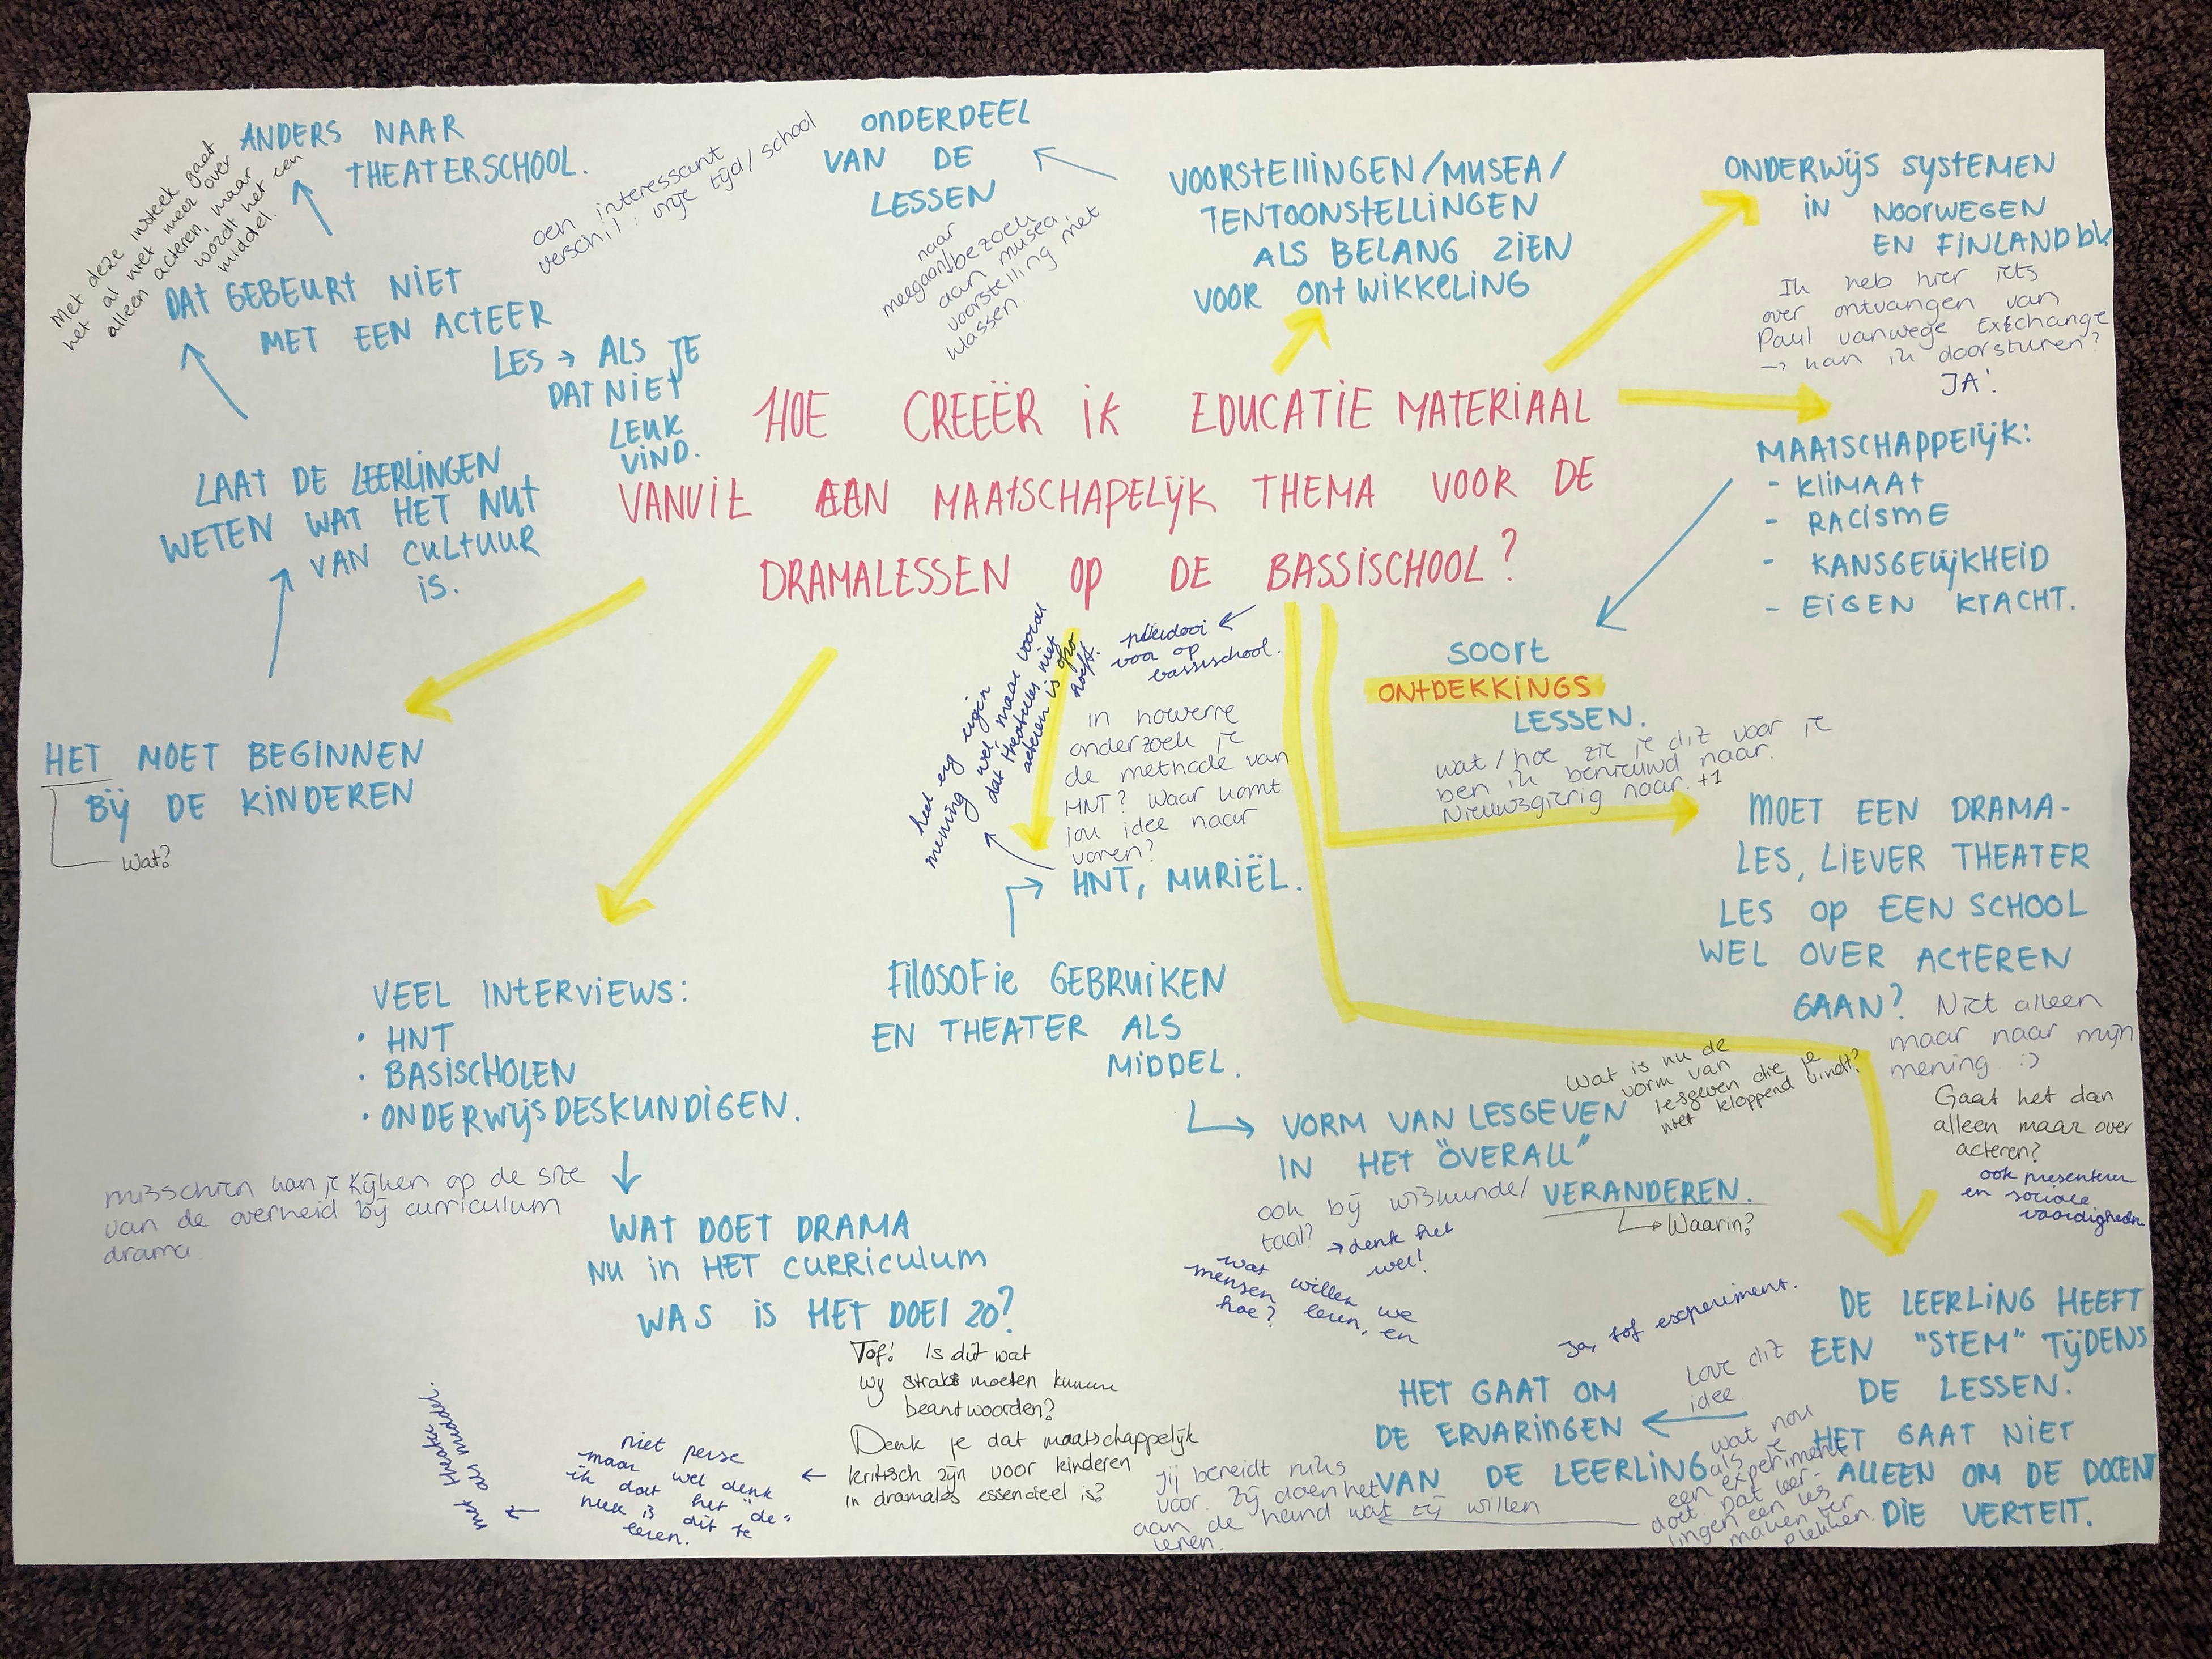 ANDERS NAAR
THEATERSCHOOL.
Met deze insteek gaat
het al niet meer over
alleen acteren, maar
wordt het een
middel.
DAT GEBEURT NIET
MET EEN ACTEER
LES → ALS JE
DAT NIET
LEUK
VIND.
een interessant
verschil: vrije tijd / school
ONDERDEEL
VAN DE
LESSEN
naar
meegaan/bezoek
aan musea,
voorstelling met
klassen.
VOORSTELLINGEN/MUSEA/
TENTOONSTELLINGEN
ALS BELANG ZIEN
VOOR ONTWIKKELING
ONDERWIJS SYSTEMEN
IN NOORWEGEN
EN FINLAND bv.
Ik heb hier iets
over ontvangen van
Paul vanwege Exchange
→ kan ik doorsturen?
JA!
HOE CREEËR IK EDUCATIE MATERIAAL
VANUIT EEN MAATSCHAPELIJK THEMA VOOR DE
DRAMALESSEN OP DE BASSISCHOOL?
MAATSCHAPPELIJK:
- KLIMAAT
- RACISME
- KANSGELIJKHEID
- EIGEN KRACHT.
SOORT
ONTDEKKINGS
LESSEN.
wat / hoe zie je dit voor je
ben ik benieuwd naar.
Nieuwsgierig naar. +1
LAAT DE LEERLINGEN
WETEN WAT HET NUT
VAN CULTUUR
IS.
HET MOET BEGINNEN
BIJ DE KINDEREN
Wat?
pleidooi
voor op
bassischool.
heel erg eigen
mening wel, maar vooral
dat theaterles niet
acteren is
hoeft.
in hoeverre
onderzoek je
de methode van
HNT? Waar komt
jou idee naar
voren?
HNT, MURIËL.
FILOSOFIE GEBRUIKEN
EN THEATER ALS
MIDDEL.
VORM VAN LESGEVEN
IN HET "OVERALL"
VERANDEREN.
Waarin?
Wat is nu de
vorm van
lesgeven die je
niet kloppend vindt?
ook bij wiskunde/
taal?
→ denk het
wel!
wat willen we
mensen leren, en
hoe?
MOET EEN DRAMA-
LES, LIEVER THEATER
LES OP EEN SCHOOL
WEL OVER ACTEREN
GAAN?
Niet alleen
maar naar mijn
mening :)
Gaat het dan
alleen maar over
acteren?
ook presenteren
en sociale
vaardigheden
VEEL INTERVIEWS:
· HNT
· BASISCHOLEN
· ONDERWIJSDESKUNDIGEN.
misschien kan je kijken op de site
van de overheid bij curriculum
drama.
WAT DOET DRAMA
NU IN HET CURRICULUM
WAS IS HET DOEL ZO?
Tof! Is dit wat
wij straks moeten kunnen
beantwoorden?
Denk je dat maatschappelijk
kritisch zijn voor kinderen
in dramales essentieel is?
niet perse
maar wel denk
ik dat het "de"
plek is dit te
leren.
met theater
als middel.
DE LEERLING HEEFT
EEN "STEM" TIJDENS
DE LESSEN.
HET GAAT NIET
ALLEEN OM DE DOCENT
DIE VERTELT.
Ja, tof experiment.
Love dit
idee
HET GAAT OM
DE ERVARINGEN
VAN DE LEERLING
wat nou
als je
een experiment
doet dat leer-
lingen een les
maken ter
plekken.
Jij bereidt niks
voor. Zij doen het
aan de hand wat zij willen
leren.